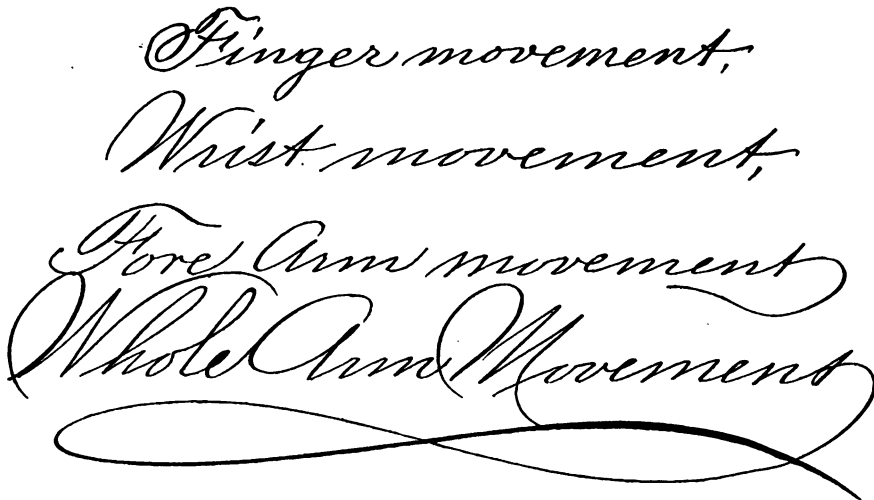 Finger movement,
Wrist movement,
Fore Arm movement
Whole Arm Movement